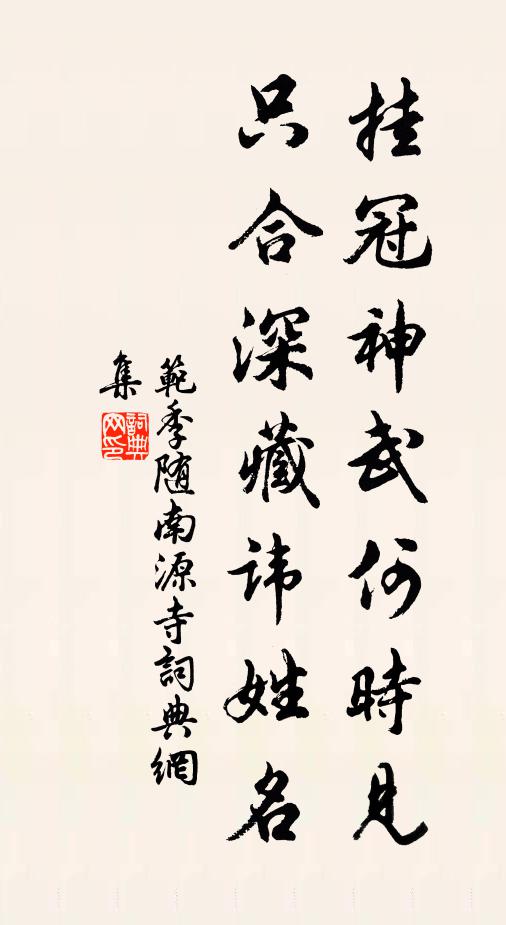 挂冠神武何時見
只合深藏諱姓名
範季随南源寺詞典網
集
詞典网印